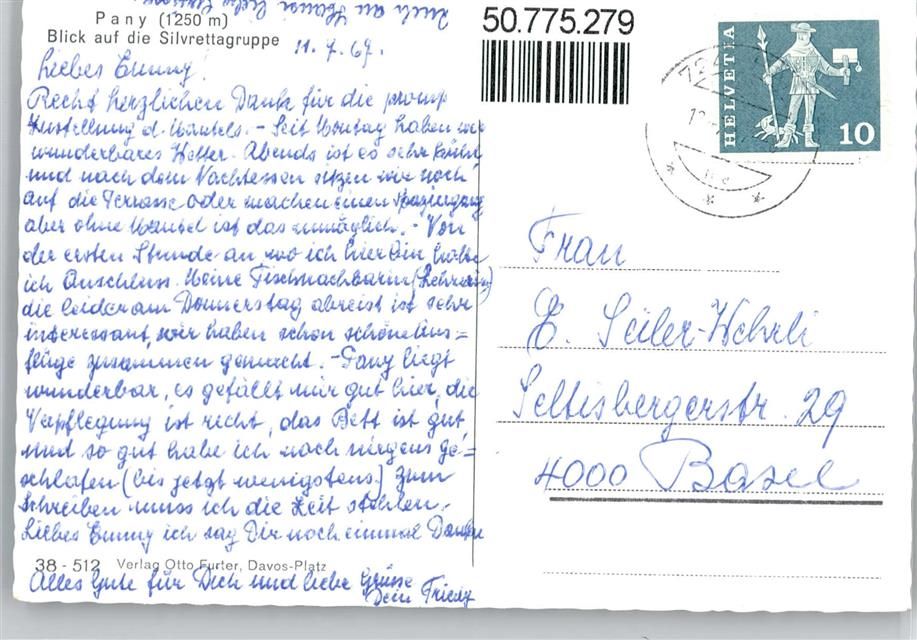 Auch an Hansi liebe Grüsse
Pany (1250 m)
Blick auf die Silvrettagruppe
11. 7. 67.
Liebes Emmy!
Recht herzlichen Dank für die promp
Zustellung d. Mantels. - Seit Montag haben wir
wunderbares Wetter. Abends ist es sehr kühl
und nach dem Nachtessen sitzen wir noch
auf die Terrasse oder machen einen Spaziergang
aber ohne Mantel ist das unmöglich. - Von
der ersten Stunde an wo ich hier bin habe
ich Anschluss. Meine Tischnachbarin (Lehrerin)
die leider am Donnerstag abreist ist sehr
interessant, wir haben schon schöne Aus=
flüge zusammen gemacht. - Pany liegt
wunderbar, es gefällt mir gut hier, die
Verpflegung ist recht, das Bett ist gut
und so gut habe ich noch nirgens ge=
schlafen (bis jetzt wenigstens.) Zum
Schreiben muss ich die Zeit stehlen.
Liebes Emmy ich sag Dir noch einmal Danke
38 - 512 Verlag Otto Furter, Davos-Platz
Alles Gute für Dich und liebe Grüsse
Dein Friedy
50.775.279
HELVETIA
10
Frau
E. Seiler-Wehrli
Seltisbergerstr. 29
4000 Basel